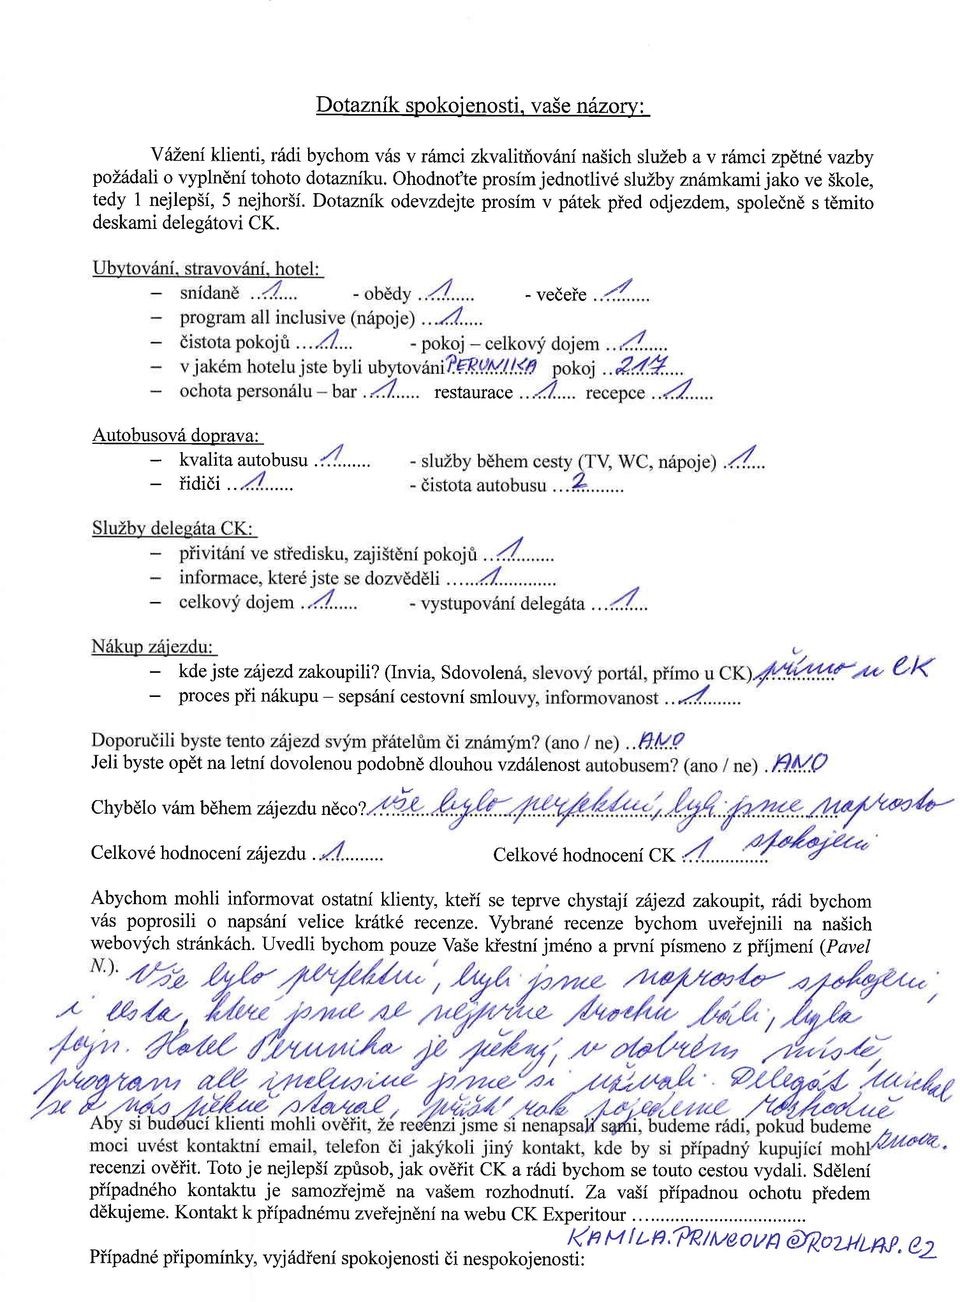 Dotazník spokojenosti, vaše názory:
Vážení klienti, rádi bychom vás v rámci zkvalitňování našich služeb a v rámci zpětné vazby
požádali o vyplnění tohoto dotazníku. Ohodnoťte prosím jednotlivé služby známkami jako ve škole,
tedy 1 nejlepší, 5 nejhorší. Dotazník odevzdejte prosím v pátek před odjezdem, společně s těmito
deskami delegátovi CK.
Ubytování, stravování, hotel:
– snídaně ..1..... - obědy ..1...... - večeře ..1......
– program all inclusive (nápoje) ...1.....
– čistota pokojů ....1... - pokoj – celkový dojem ...1.....
– v jakém hotelu jste byli ubytováni PERUNIKA pokoj ..217....
– ochota personálu – bar ..1...... restaurace ...1.... recepce ...1......
Autobusová doprava:
– kvalita autobusu ..1....... - služby během cesty (TV, WC, nápoje) ..1.....
– řidiči ...1...... - čistota autobusu ...2.........
Služby delegáta CK:
– přivítání ve středisku, zajištění pokojů ...1........
– informace, které jste se dozvěděli ......1............
– celkový dojem ..1...... - vystupování delegáta ....1....
Nákup zájezdu:
– kde jste zájezd zakoupili? (Invia, Sdovolená, slevový portál, přímo u CK) přímo u CK
– proces při nákupu – sepsání cestovní smlouvy, informovanost ...1........
Doporučili byste tento zájezd svým přátelům či známým? (ano / ne) ..ANO
Jeli byste opět na letní dovolenou podobně dlouhou vzdálenost autobusem? (ano / ne) .ANO
Chybělo vám během zájezdu něco? vše bylo perfektní, byli jsme naprosto
spokojeni
Celkové hodnocení zájezdu ..1......... Celkové hodnocení CK .1..............
Abychom mohli informovat ostatní klienty, kteří se teprve chystají zájezd zakoupit, rádi bychom
vás poprosili o napsání velice krátké recenze. Vybrané recenze bychom uveřejnili na našich
webových stránkách. Uvedli bychom pouze Vaše křestní jméno a první písmeno z příjmení (Pavel
N.). Vše bylo perfektní, byli jsme naprosto spokojeni,
i cesta, které jsme se nejprve trochu báli, byla
fajn. Hotel Perunika je pěkný, v dobrém místě,
program all inclusive jsme si užívali. Delegát Michal
se o nás pěkně staral, příští rok pojedeme rozhodně
znova.
Aby si budoucí klienti mohli ověřit, že recenzi jsme si nenapsali sami, budeme rádi, pokud budeme
moci uvést kontaktní email, telefon či jakýkoli jiný kontakt, kde by si případný kupující mohl
recenzi ověřit. Toto je nejlepší způsob, jak ověřit CK a rádi bychom se touto cestou vydali. Sdělení
případného kontaktu je samozřejmě na vašem rozhodnutí. Za vaší případnou ochotu předem
děkujeme. Kontakt k případnému zveřejnění na webu CK Experitour ...................................
KAMILA.PRINCOVA@ROZHLAS.CZ
Případné připomínky, vyjádření spokojenosti či nespokojenosti: